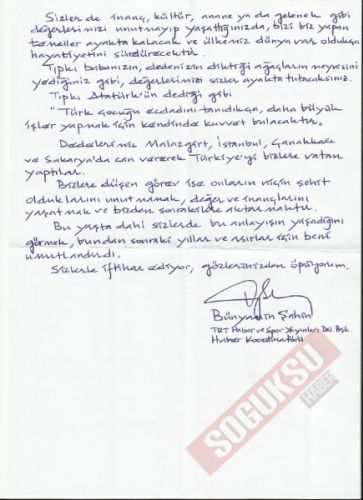 Sizler de inanç, kültür, anane ya da gelenek gibi
değerlerimizi unutmayıp yaşattığınızda, bizi biz yapan
temeller ayakta kalacak ve ülkemiz dünya var oldukça
hayatiyetini sürdürecektir.
Tıpkı babanızın, dedenizin diktiği ağaçların meyvesini
yediğiniz gibi, değerlerimizi sizler ayakta tutacaksınız.
Tıpkı Atatürk'ün dediği gibi
"Türk çocuğu ecdadını tanıdıkça, daha büyük
işler yapmak için kendinde kuvvet bulacaktır.
Dedelerimiz Malazgirt, İstanbul, Çanakkale
ve Sakarya'da can vererek Türkiye'yi bizlere vatan
yaptılar.
Bizlere düşen görev ise onların niçin şehit
olduklarını unutmamak, değer ve inançlarını
yaşatmak ve bizden sonrakilere aktarmaktır.
Bu yaşta dahi sizlerde bu anlayışın yaşadığını
görmek, bundan sonraki yıllar ve asırlar için beni
umutlandırdı.
Sizlerle iftihar ediyor, gözlerinizden öpüyorum.
Bünyamin Şahin
TRT Haber ve Spor Yayınları Dai. Bşk.
Haber Koordinatörü
SOGUKSU
HABER